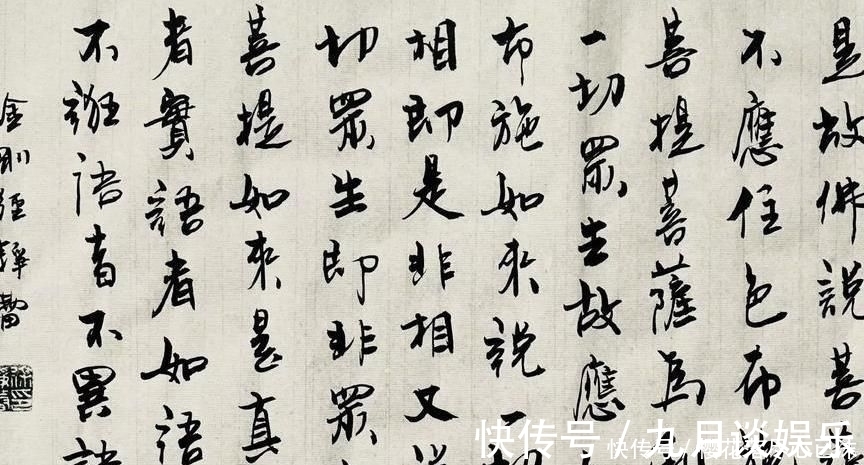 是故佛說菩
不應住色布
菩提菩薩為
一切眾生故應
布施如來說一
相即是非相又說
切眾生即非眾
菩提如來是真
者實語者如語
不誑語者不異語
金剛經
快传号 / 九月谈娱乐
快传号/樱花